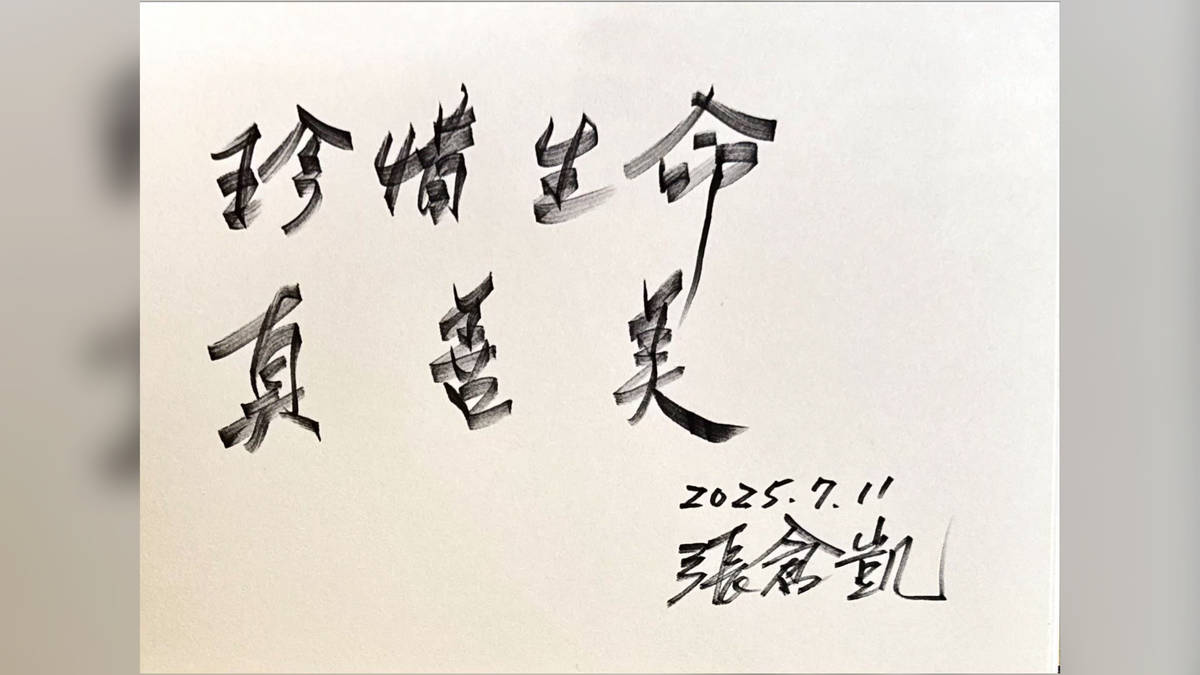 珍惜生命
真善美
2025.7.11
張倉凱